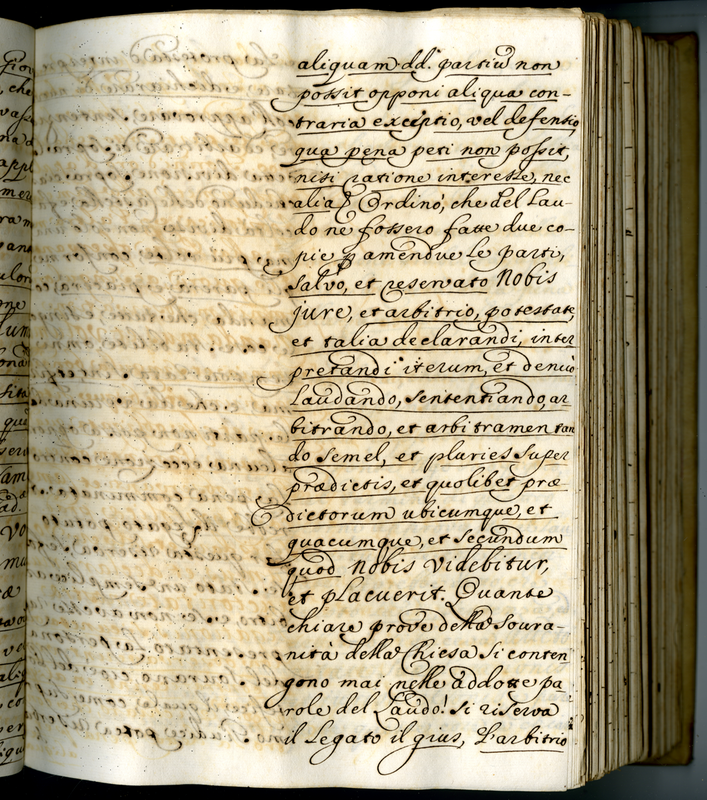 aliquam dd. partiũ non
possit opponi aliqua con-
traria exceptio, vel defensio,
qua pena peti non possit,
nisi ratione interesse, nec
alia. Ordinò, che del Lau-
do ne fossero fatte due co-
pie p amendue le parti,
salvo, et reservato Nobis
jure, et arbitrio, potestate,
et talia declarandi, inter
pretandi iterum, et denuò
Laudando, sententiando, ar
bitrando, et arbitramentan
do semel, et pluries super
prædictis, et quolibet præ
dictorum ubicumque, et
quacumque, et secundum
quod Nobis videbitur,
et placuerit. Quante
chiare prove della Soura-
nità della Chiesa si conten
gono mai nelle addotte pa
role del Laudo! Si riserva
il Legato il gius, L'arbitrio